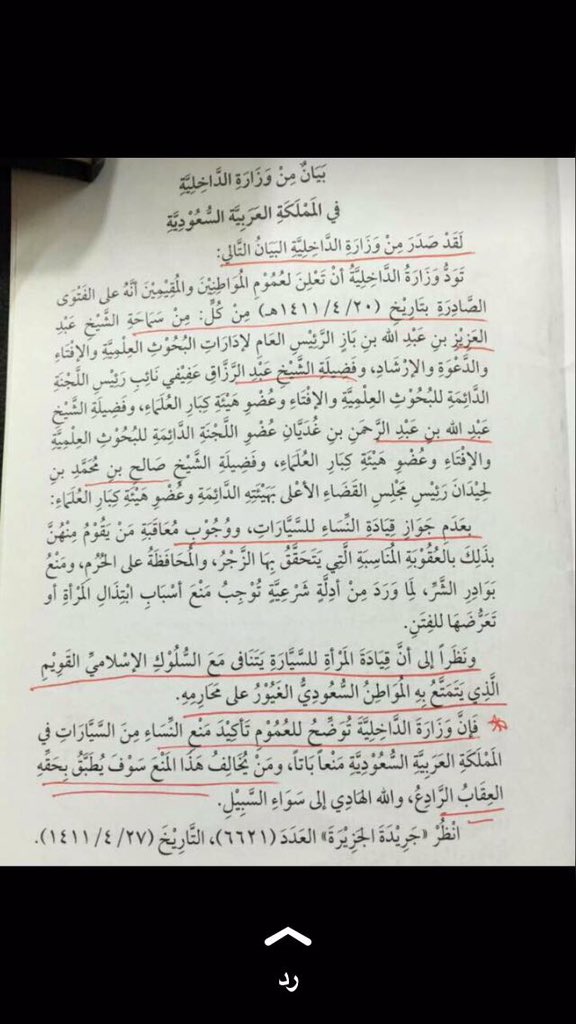 بَيَانٌ مِنْ وَزَارَةِ الدَّاخِلِيَّةِ
في المَمْلَكَةِ العَرَبِيَّةِ السُّعُوْدِيَّةِ
لَقَدْ صَدَرَ مِنْ وَزَارَةِ الدَّاخِلِيَّةِ البَيَانُ التَّالي:
تَوَدُّ وَزَارَةُ الدَّاخِلِيَّةُ أنْ تَعْلِنَ لعُمُومِ المُوَاطِنِيْنَ والمُقِيْمِيْنَ أنَّهُ على الفَتْوَى
الصَّادِرَةِ بتَارِيْخِ (١٤١١/٤/٢٠هـ) مِنْ كُلٍّ: مِنْ سَمَاحَةِ الشَّيْخِ عَبْدِ
العَزِيْزِ بنِ عَبْدِ الله بنِ بَازٍ الرَّئِيْسِ العَامِ لإدَارَاتِ البُحُوْثِ العِلْمِيَّةِ والإفْتَاءِ
والدَّعْوَةِ والإرْشَادِ، وفَضِيلَةِ الشَّيْخِ عَبْدِ الرَّزَّاقِ عَفِيْفي نَائِبِ رَئِيْسِ اللَّجْنَةِ
الدَّائِمَةِ للبُحُوْثِ العِلْمِيَّةِ والإفْتَاءِ وعُضْوِ هَيْئَةِ كِبَارِ العُلَمَاءِ، وفَضِيلَةِ الشَّيْخِ
عَبْدِ الله بنِ عَبْدِ الرَّحمَنِ بنِ غُدَيَّانِ عُضْوِ اللَّجْنَةِ الدَّائِمَةِ للبُحُوْثِ العِلْمِيَّةِ
والإفْتَاءِ وعُضْوِ هَيْئَةِ كِبَارِ العُلَمَاءِ، وفَضِيلَةِ الشَّيْخِ صَالِحِ بنِ مُحَمَّدِ بنِ
لِحِيْدَانَ رَئِيْسِ مَجْلِسِ القَضَاءِ الأعْلى بَهَيْئَتِهِ الدَّائِمَةِ وعُضْوِ هَيْئَةِ كِبَارِ العُلَمَاءِ:
بعَدَمِ جَوَازِ قِيَادَةِ النِّسَاءِ للسَّيَّارَاتِ، ووُجُوْبِ مُعَاقَبَةِ مَنْ يَقُوْمُ مِنْهُنَّ
بذَلِكَ بالعُقُوْبَةِ المُنَاسِبَةِ الَّتِي يَتَحَقَّقُ بِهَا الزَّجْرُ، والمُحَافَظَةُ على الحُرُمِ، ومَنْعُ
بَوَادِرِ الشَّرِّ، لِمَا وَرَدَ مِنْ أدِلَّةٍ شَرْعِيَّةٍ تُوْجِبُ مَنْعَ أسْبَابِ ابْتِذَالِ المَرْأةِ أو
تَعَرُّضَهَا للفِتَنِ.
ونَظَراً إلى أنَّ قِيَادَةَ المَرْأةِ للسَّيَّارَةِ يَتَنَافى مَعَ السُّلُوْكِ الإسْلاميِّ القَوِيْمِ
الَّذِي يَتَمَتَّعُ بِهِ المُوَاطِنُ السُّعُوْدِيُّ الغَيُوْرُ على مَحَارِمِهِ.
فَإنَّ وَزَارَةَ الدَّاخِلِيَّةَ تُوَضِّحُ للعُمُوْمِ تَأكِيْدَ مَنْعِ النِّسَاءِ مِنَ السَّيَّارَاتِ في
المَمْلَكَةِ العَرَبِيَّةِ السُّعُوْدِيَّةِ مَنْعاً بَاتاً، ومَنْ يُخَالِفُ هَذَا المَنْعَ سَوْفَ يُطَبَّقُ بحَقِّهِ
العِقَابُ الرَّادِعُ، والله الهَادِي إلى سَوَاءِ السَّبِيْلِ.
انْظُرْ «جَرِيْدَةَ الجَزِيْرَةِ» العَدَدَ (٦٦٢١)، التَّارِيْخَ (١٤١١/٤/٢٧).
رد